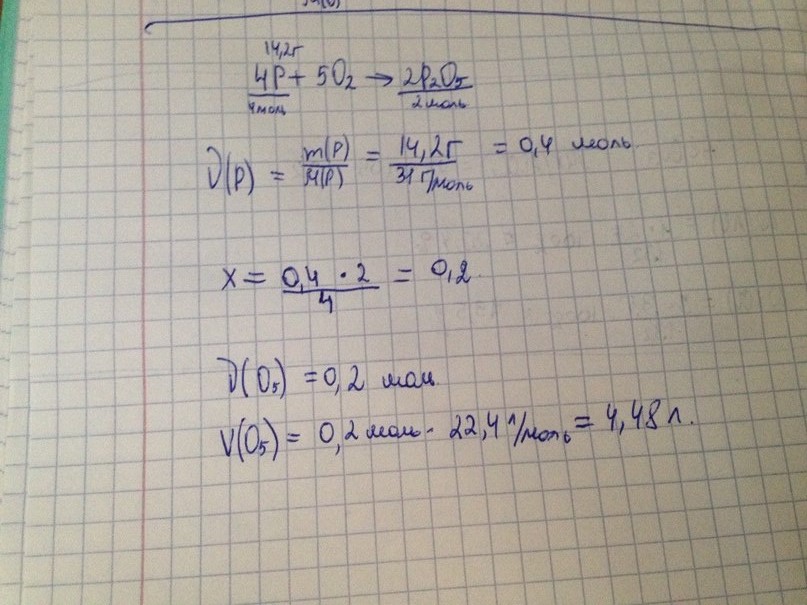 14,2г
4P + 5O₂ → 2P₂O₅
4моль 2моль
ν(P) = m(P)/M(P) = 14,2г/31 г/моль = 0,4 моль
x = 0,4 · 2/4 = 0,2.
ν(O₅) = 0,2 моль
V(O₅) = 0,2 моль · 22,4 л/моль = 4,48 л.